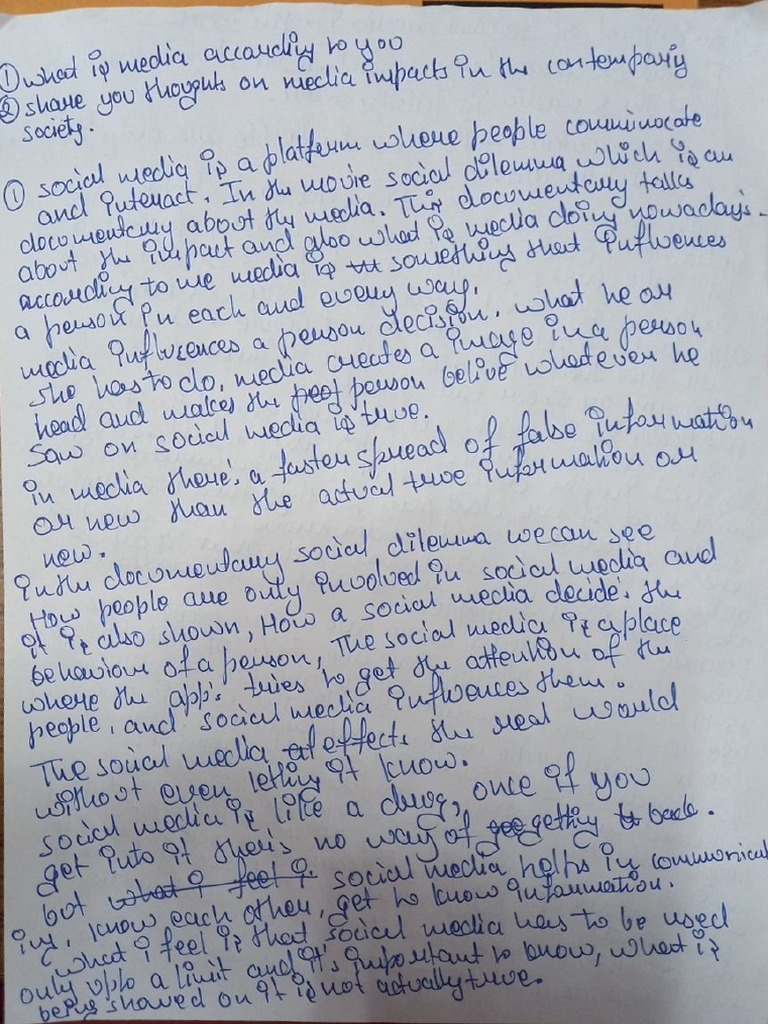 ① what is media according to you
② share you thoughts on media impacts in the contemporary
society.
① social media is a platform where people comminocate
and interact. In the movie social dilemma which is an
documentary about the media. This documentary talks
about the impact and also what is media doing nowadays.
according to me media is something that influences
a person in each and every way.
media influences a person decision. what he or
she has to do, media creates a image in a person
head and makes the person belive whatever he
saw on social media is true.
in media there's a faster spread of false information
or new than the actual true information or
new.
in the documentary social dilemma we can see
How people are only involved in social media and
it is also shown, How a social media decide's the
behaviour of a person, The social media is a place
where the app's tries to get the attention of the
people, and social media influences them.
The social media effects the real would
without even letting it know.
social media is like a drug, once if you
get into it there's no way of getting back.
but what i feel is social media helps in communicat
ing, know each other, get to know information.
what i feel is that social media has to be used
only upto a limit and it's important to know, what is
being showed on it is not actually true.